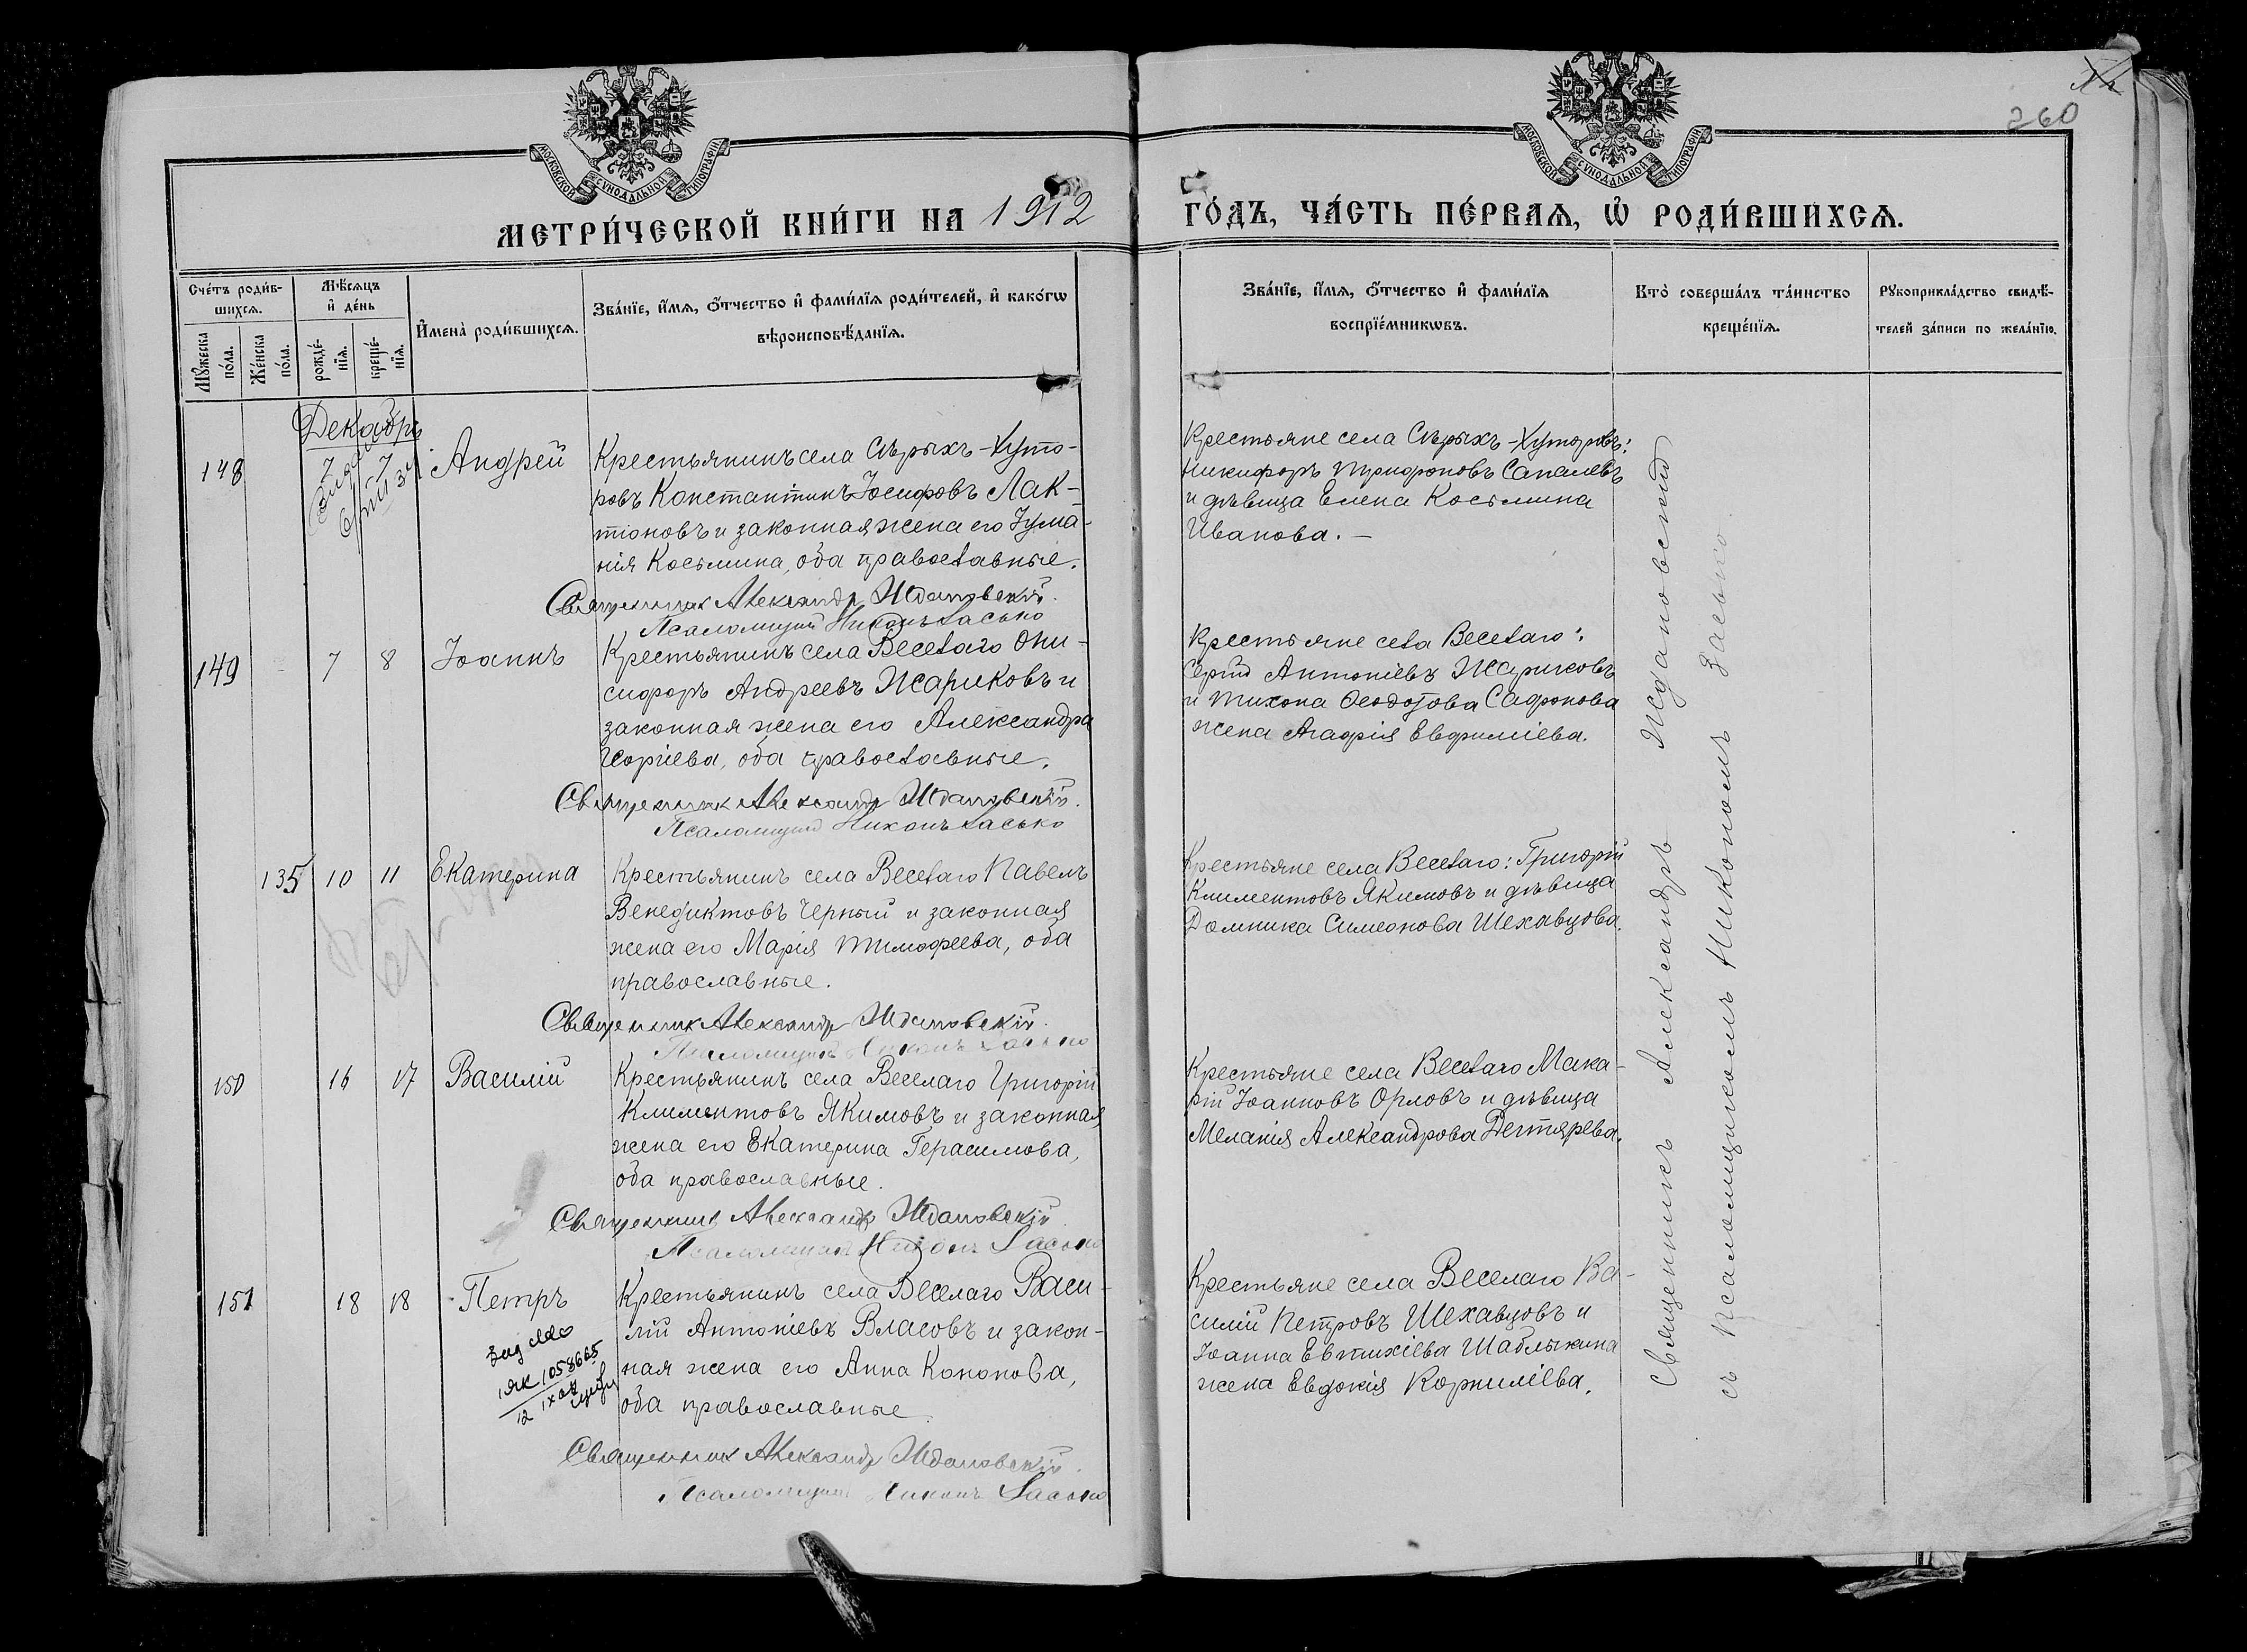 260
МОСКОВСКОЙ СѴНОДАЛЬНОЙ ТИПОГРАФІИ
МОСКОВСКОЙ СѴНОДАЛЬНОЙ ТИПОГРАФІИ
МЕТРИ́ЧЕСКОЙ КНИ́ГИ НА 1912 ГО́ДЪ, ЧА́СТЬ ПЕ́РВАѦ, Ѡ҆ РОДИ́ВШИХСѦ.
Сче́тъ роди́в-
шихсѧ.
Мꙋ́жеска по́ла.
Же́нска по́ла.
Мѣ́сѧцъ
и҆ де́нь
рожде́-
нїѧ.
креще́-
нїѧ.
И҆мена̀ роди́вшихсѧ.
Зва́нїе, и҆́мѧ, ѻ҆́тчество и҆ фами́лїѧ роди́телей, и҆ како́гѡ
вѣроисповѣ́данїѧ.
Зва́нїе, и҆́мѧ, ѻ҆́тчество и҆ фами́лїѧ
воспрїе́мникѡвъ.
Кто̀ соверша́лъ та́инство
креще́нїѧ.
Рꙋкоприкла́дство свидѣ́-
телей за́писи по жела́нїю.
Декабрь
148 7 7 Андрей
Крестьянинъ села Сѣрыхъ-Хуто-
ровъ Константинъ Іосифовъ Лак-
тіоновъ и законная жена его Іулиа-
нія Косьмина, оба православные.
Священникъ Александръ Ждановскій.
Псаломщикъ Никонъ Засько
Крестьяне села Сѣрыхъ-Хуторовъ:
Никифоръ Трифоновъ Сапалевъ
и дѣвица Елена Косьмина
Иванова. –
149 7 8 Іоаннъ
Крестьянинъ села Веселаго Они-
сифоръ Андреевъ Жариковъ и
законная жена его Александра
Георгіева, оба православные.
Священникъ Александръ Ждановскій.
Псаломщикъ Никонъ Засько
Крестьяне села Веселаго:
Сергій Антоніевъ Жариковъ
и Тихона Ѳеодотова Сафонова
жена Агафія Евфиміева.
135 10 11 Екатерина
Крестьянинъ села Веселаго Павелъ
Венедиктовъ Черный и законная
жена его Марія Тимофеева, оба
православные.
Священникъ Александръ Ждановскій.
Псаломщикъ Никонъ Засько
Крестьяне села Веселаго: Григорій
Климентовъ Якимовъ и дѣвица
Домника Симеонова Шехавцова.
150 16 17 Василій
Крестьянинъ села Веселаго Григорій
Климентовъ Якимовъ и законная
жена его Екатерина Герасимова,
оба православные.
Священникъ Александръ Ждановскій.
Псаломщикъ Никонъ Засько
Крестьяне села Веселаго Мака-
рій Іоанновъ Орловъ и дѣвица
Меланія Александрова Дегтярева.
151 18 18 Петръ
1058665
12
Крестьянинъ села Веселаго Васи-
лій Антоніевъ Власовъ и закон-
ная жена его Анна Кононова,
оба православные.
Священникъ Александръ Ждановскій.
Псаломщикъ Никонъ Засько
Крестьяне села Веселаго Ва-
силій Петровъ Шехавцовъ и
Іоанна Евтихіева Шаблыкина
жена Евдокія Корниліева.
Священникъ Александръ Ждановскій
съ Псаломщикомъ Никономъ Засько